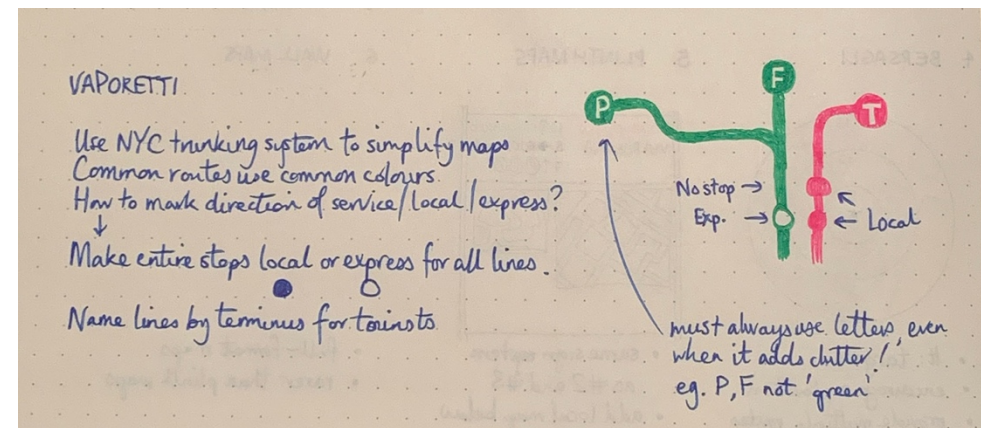 VAPORETTI
Use NYC trunking system to simplify maps
Common routes use common colours.
How to mark direction of service/local/express?
↓
Make entire stops local or express for all lines.
Name lines by terminus for tourists
P
F
T
No stop →
Exp. →
← Local
must always use letters, even
when it adds clutter!
eg. P, F not 'green'